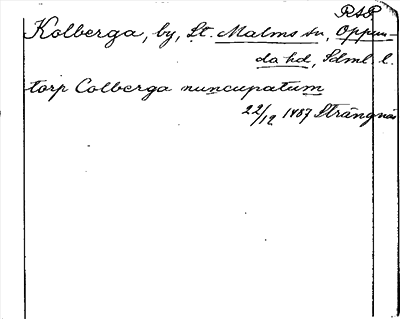 RAP
Kolberga, by, St. Malms sn, Oppun-
da hd, Sdml. l.
torp Colberga nuncupatum
22/12 1487 Strängnäs